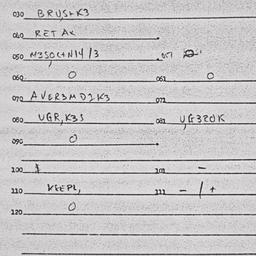 030 BRUSHK3
040 RET AK
050 M3SOC+N14/3 051
060 0 061 0
070 AVER3MD2K3 071
080 UGR,K3S 081 UG320K
090 0
100 $ 101 –
110 KEEPL, 111 – / +
120 0